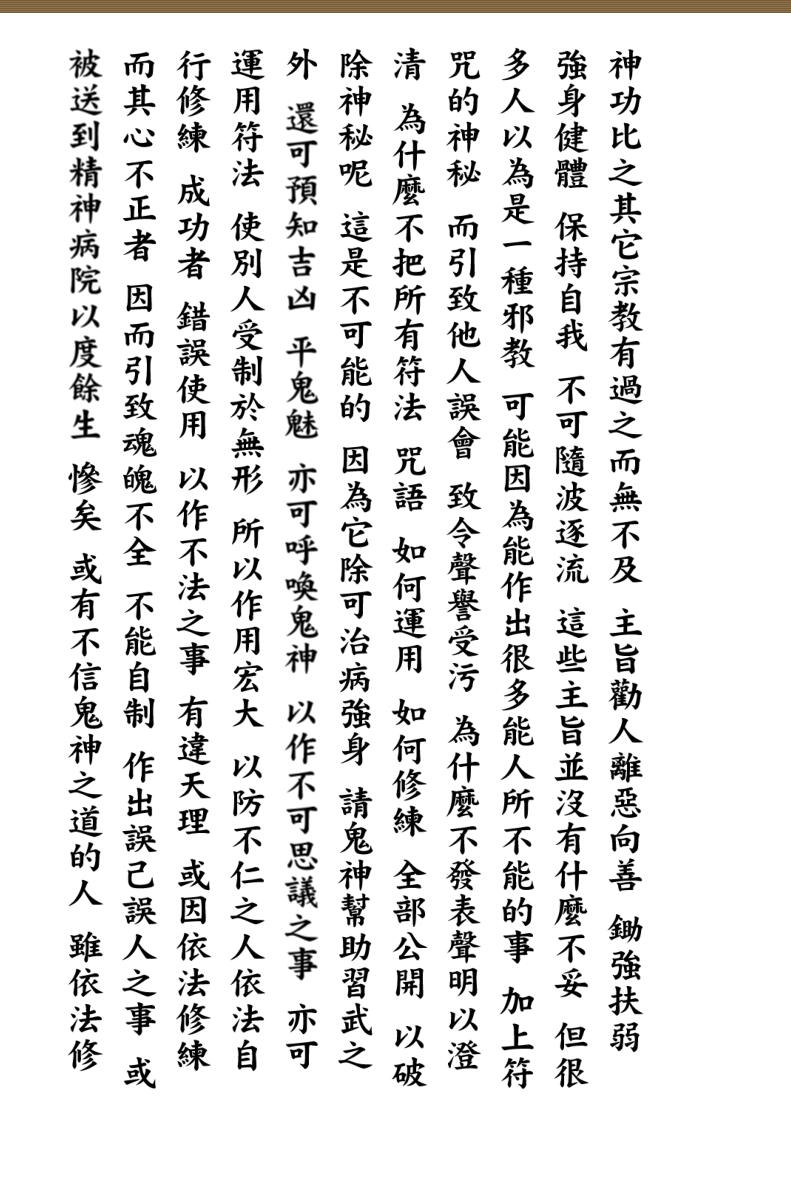 神功比之其它宗教有過之而無不及 主旨勸人離惡向善 鋤強扶弱
強身健體 保持自我 不可隨波逐流 這些主旨並沒有什麼不妥 但很
多人以為是一種邪教 可能因為能作出很多能人所不能的事 加上符
咒的神秘 而引致他人誤會 致令聲譽受污 為什麼不發表聲明以澄
清 為什麼不把所有符法 咒語 如何運用 如何修練 全部公開 以破
除神秘呢 這是不可能的 因為它除可治病強身 請鬼神幫助習武之
外 還可預知吉凶 平鬼魅 亦可呼喚鬼神 以作不可思議之事 亦可
運用符法 使別人受制於無形 所以作用宏大 以防不仁之人依法自
行修練 成功者 錯誤使用 以作不法之事 有違天理 或因依法修練
而其心不正者 因而引致魂魄不全 不能自制 作出誤己誤人之事 或
被送到精神病院以度餘生 慘矣 或有不信鬼神之道的人 雖依法修